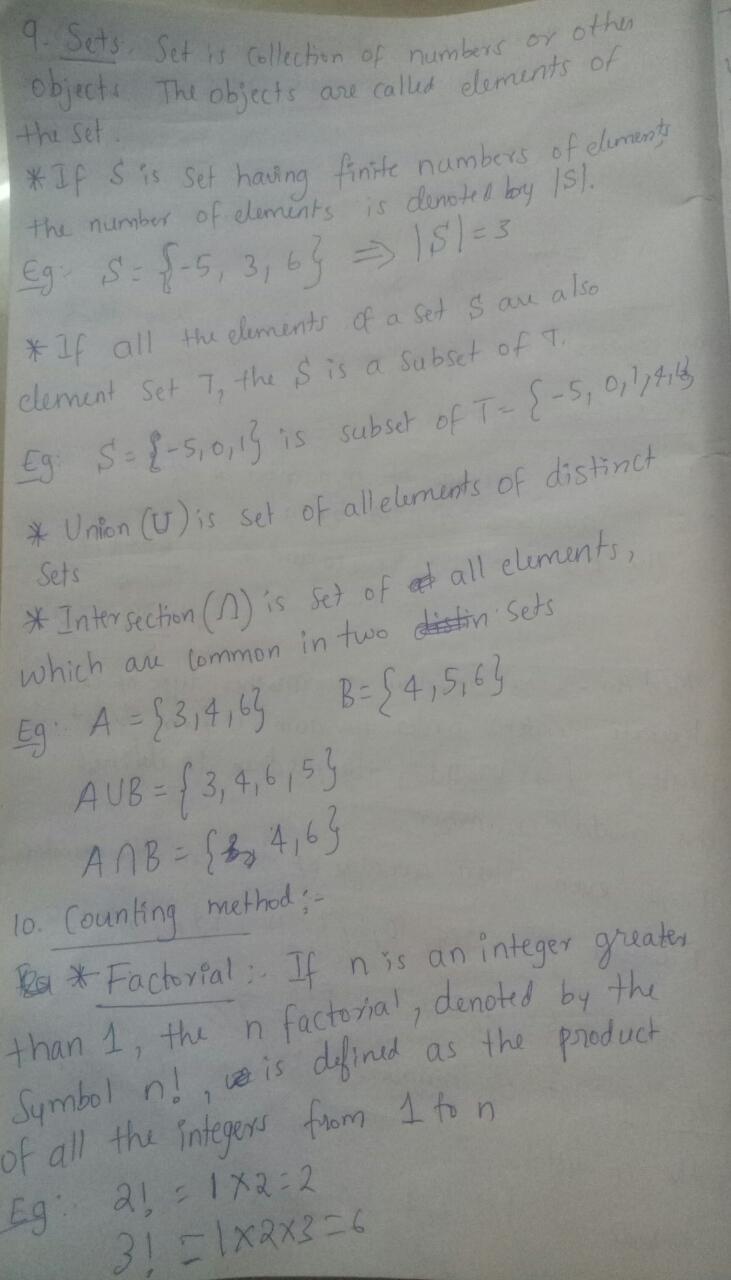 9. Sets. Set is collection of numbers or other
objects. The objects are called elements of
the set.
* If S is set having finite numbers of elements
the number of elements is denoted by |S|.
Eg:- S = {-5, 3, 6} ⇒ |S| = 3
* If all the elements of a set S are also
element set T, the S is a subset of T.
Eg: S = {-5, 0, 1} is subset of T = {-5, 0, 1, 4,
* Union (U) is set of all elements of distinct
Sets
* Intersection (∩) is set of all elements,
which are common in two sets
Eg: A = {3, 4, 6} B = {4, 5, 6}
A ∪ B = {3, 4, 6, 5}
A ∩ B = {4, 6}
10. Counting method :-
* Factorial :- If n is an integer greater
than 1, the n factorial, denoted by the
Symbol n!, is defined as the product
of all the integers from 1 to n
Eg: 2! = 1 X 2 = 2
3! = 1 X 2 X 3 = 6